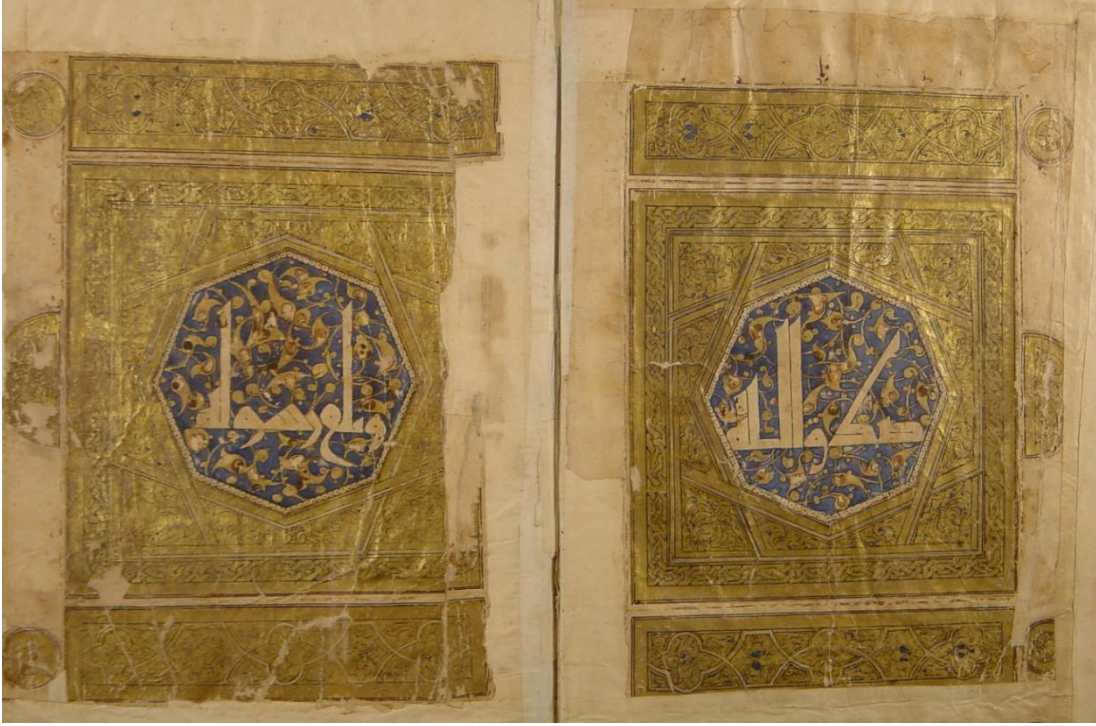 صدق الله
وبلغ رسوله